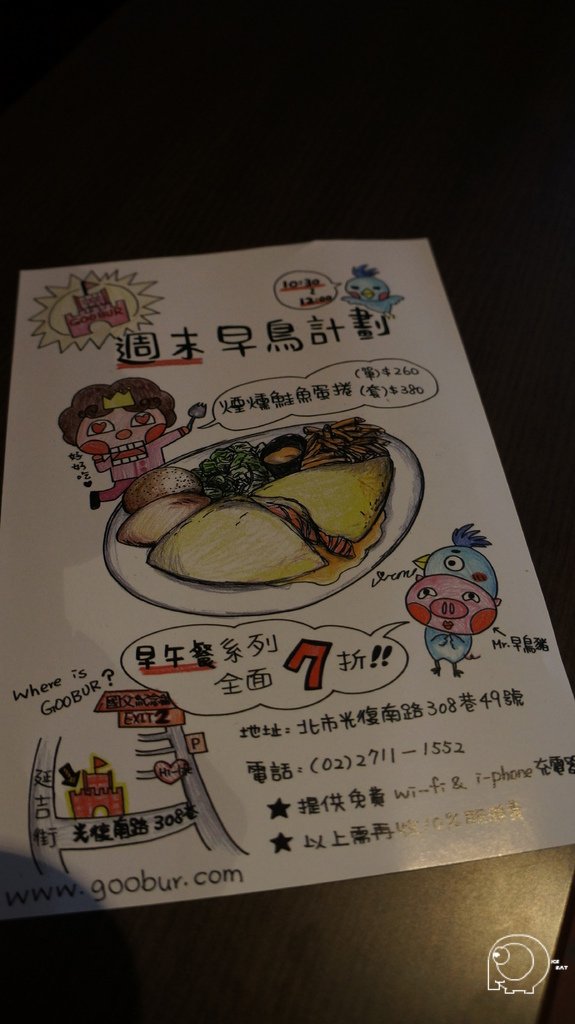 GOOBUR
10:30
~
12:00
週末早鳥計劃
煙燻鮭魚蛋捲 (單)$260
(套)$380
好好吃
早午餐系列
全面7折!!
Mr.早鳥豬
Where is
GOOBUR?
EXIT 2
P
Hi-Life
延吉街
光復南路308巷
地址:北市光復南路308巷49號
電話:(02)2711-1552
★提供免費 wi-fi & i-phone充電
★以上需再收10%服務費
www.goobur.com